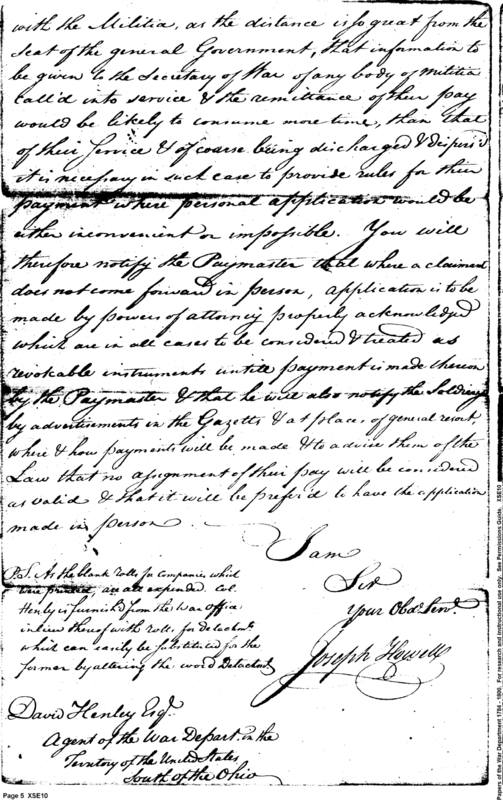 with the Militia, as the distance is so great from the
seat of the general Government, that information to
be given to the Secretary of War of any body of militia
call'd into service & the remittance of their pay
would be likely to consume more time, than that
of their Service & of coarse being discharged & dispers'd
it is necessary in such case to provide rules for their
payment where personal application would be
either inconvenient or impossible. You will
therefore notify the Paymaster that where a claimant
does not come forward in person, application is to be
made by powers of attorney properly acknowledged
which are in all cases to be considered & treated as
revokable instruments untill payment is made thereon
by the Paymaster & that he will also notify the Soldiery
by advertisements in the Gazetts & at places of general resort,
where & how payments will be made & to advise them of the
Law that no assignment of their pay will be considered
as valid & that it will be prefer'd to have the application
made in person.
I am
Sir
Your Obdt. Servt.
Joseph Howell
P.S. As the blank rolls for companies which
were printed, are all expended. Col.
Henly is furnish'd from the War office
in lieu thereof with rolls for detachmts.
which can easily be substituted for the
former by altering the word Detachmt.
David Henley Esqr.
Agent of the War Depart. in the
Territory of the United States
South of the Ohio
Page 5 XSE10
Papers of the War Department 1784 - 1800. For research and instructional use only. See Permissions Guide.